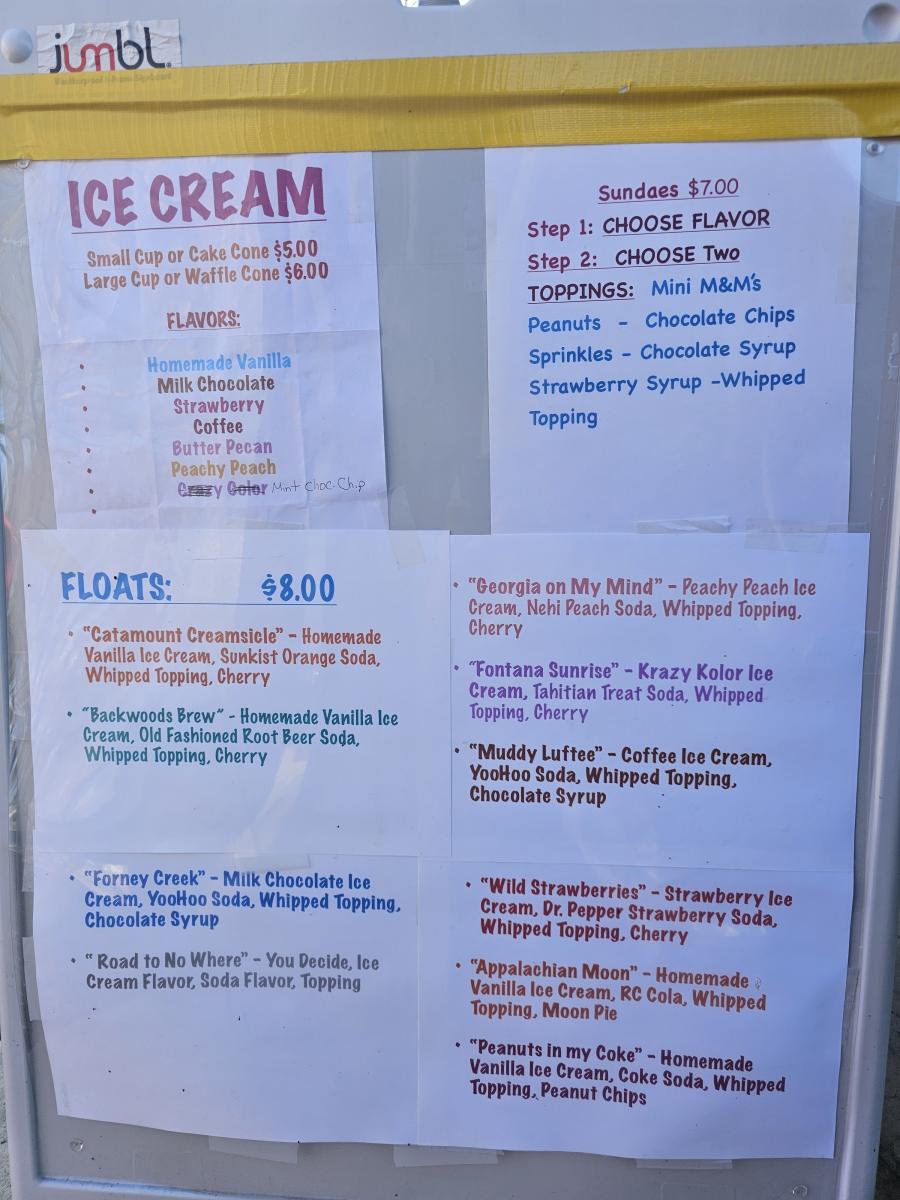 jumbl.
ICE CREAM
Small Cup or Cake Cone $5.00
Large Cup or Waffle Cone $6.00
FLAVORS:
Homemade Vanilla
Milk Chocolate
Strawberry
Coffee
Butter Pecan
Peachy Peach
Crazy Color Mint Choc Chip
Sundaes $7.00
Step 1: CHOOSE FLAVOR
Step 2: CHOOSE Two
TOPPINGS: Mini M&M's
Peanuts - Chocolate Chips
Sprinkles - Chocolate Syrup
Strawberry Syrup -Whipped
Topping
FLOATS: $8.00
• "Catamount Creamsicle" - Homemade
Vanilla Ice Cream, Sunkist Orange Soda,
Whipped Topping, Cherry
• "Backwoods Brew" - Homemade Vanilla Ice
Cream, Old Fashioned Root Beer Soda,
Whipped Topping, Cherry
• "Georgia on My Mind" - Peachy Peach Ice
Cream, Nehi Peach Soda, Whipped Topping,
Cherry
• "Fontana Sunrise" - Krazy Kolor Ice
Cream, Tahitian Treat Soda, Whipped
Topping, Cherry
• "Muddy Luftee" - Coffee Ice Cream,
YooHoo Soda, Whipped Topping,
Chocolate Syrup
• "Forney Creek" - Milk Chocolate Ice
Cream, YooHoo Soda, Whipped Topping,
Chocolate Syrup
• " Road to No Where" - You Decide, Ice
Cream Flavor, Soda Flavor, Topping
• "Wild Strawberries" - Strawberry Ice
Cream, Dr. Pepper Strawberry Soda,
Whipped Topping, Cherry
• "Appalachian Moon" - Homemade
Vanilla Ice Cream, RC Cola, Whipped
Topping, Moon Pie
• "Peanuts in my Coke" - Homemade
Vanilla Ice Cream, Coke Soda, Whipped
Topping, Peanut Chips